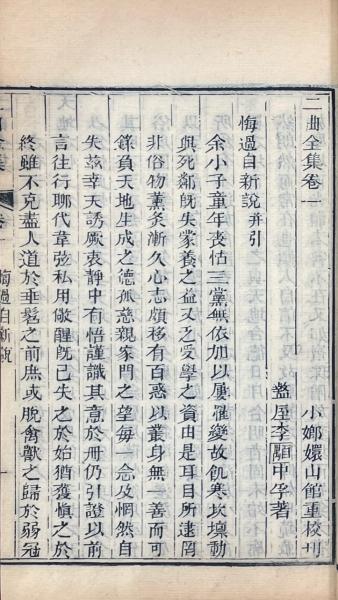 二曲全集卷一
小嫏嬛山館重校刊
盩厔李顒中孚著
悔過自新說 并引
余小子童年喪怙三黨無依加以屢罹變故飢寒坎壈動
與死鄰旣失蒙養之益又乏受學之資由是耳目所逮罔
非俗物薰灸漸久心志頗移有百惑以叢身無一善而可
錄負天地生成之德孤慈親家門之望每一念及惘然自
失茲幸天誘厥衷靜中有悟謹識其意於册仍引證以前
言往行聊代韋弦私用儆醒旣已失之於始猶獲愼之於
終雖不克盡人道於垂髫之前庶或脫禽獸之歸於弱冠
二曲全集
卷一
悔過自新說
一